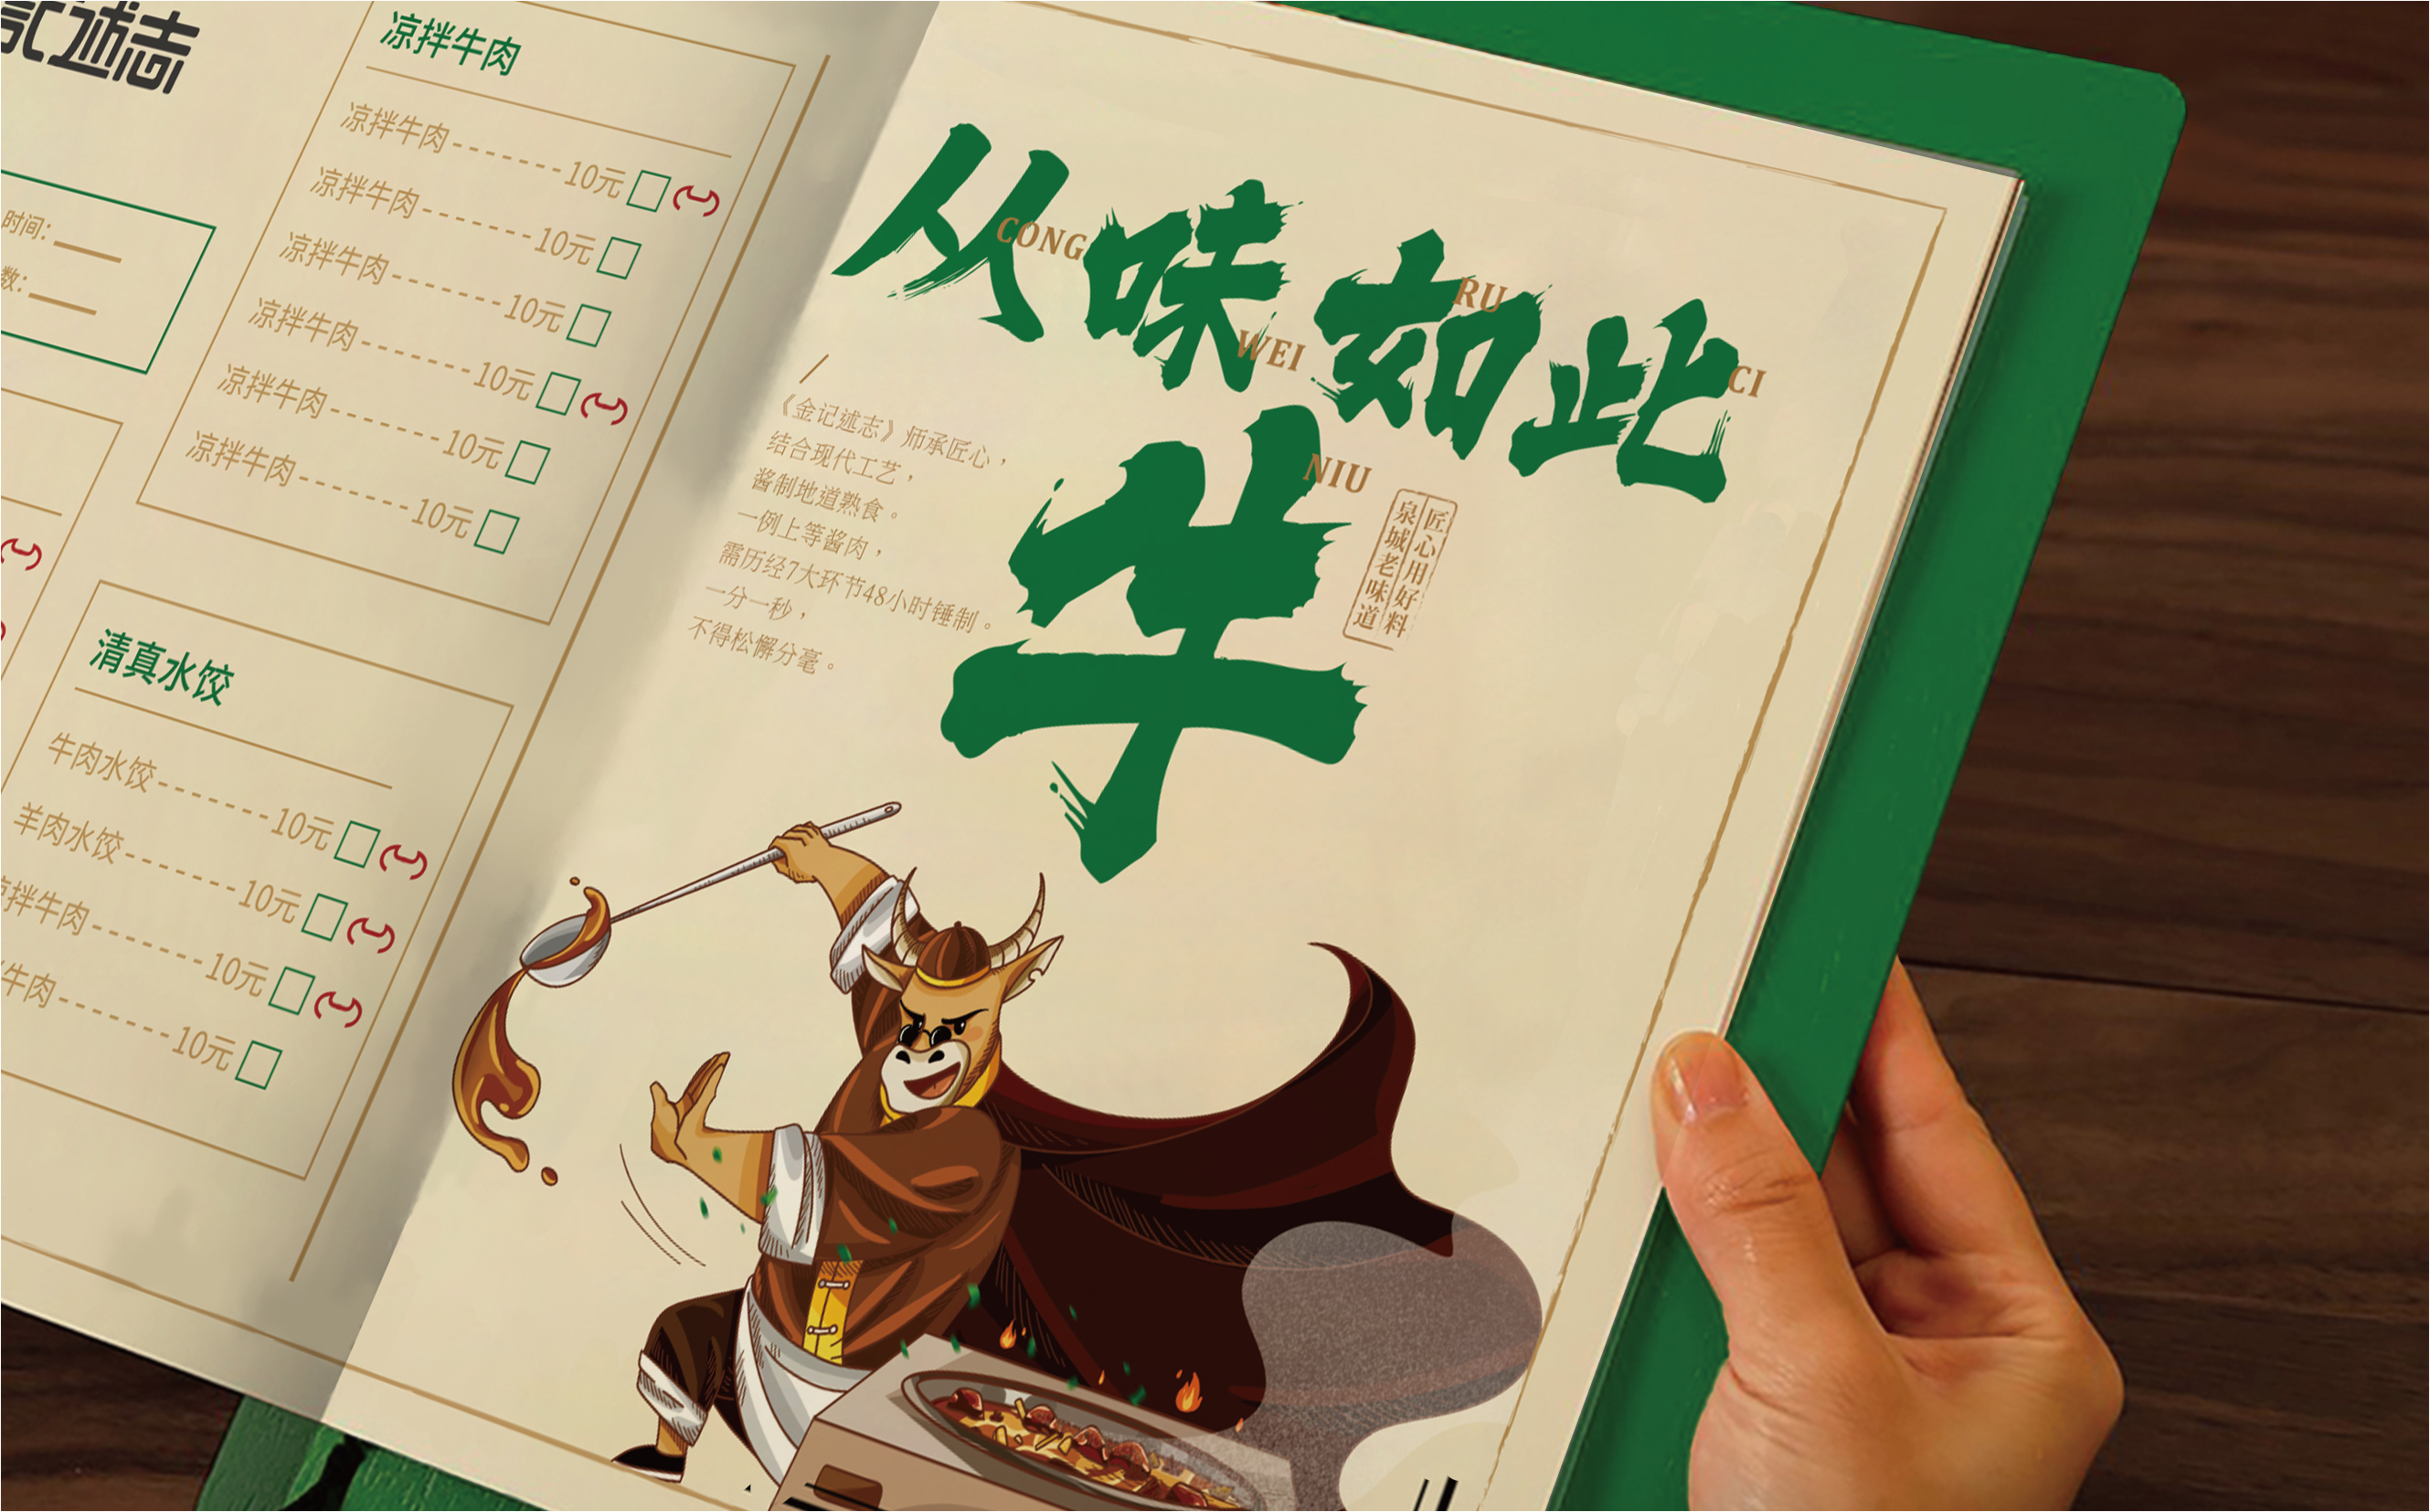 記述志
时间:
数:
凉拌牛肉
凉拌牛肉---------10元
凉拌牛肉---------10元
凉拌牛肉---------10元
凉拌牛肉---------10元
凉拌牛肉---------10元
凉拌牛肉---------10元
清真水饺
牛肉水饺---------10元
羊肉水饺---------10元
拌牛肉---------10元
牛肉---------10元
从味如此
CONG
WEI
RU
CI
牛
NIU
匠心用好料
泉城老味道
《金记述志》师承匠心，
结合现代工艺，
酱制地道熟食。
一例上等酱肉，
需历经7大环节48小时锤制。
一分一秒，
不得松懈分毫。